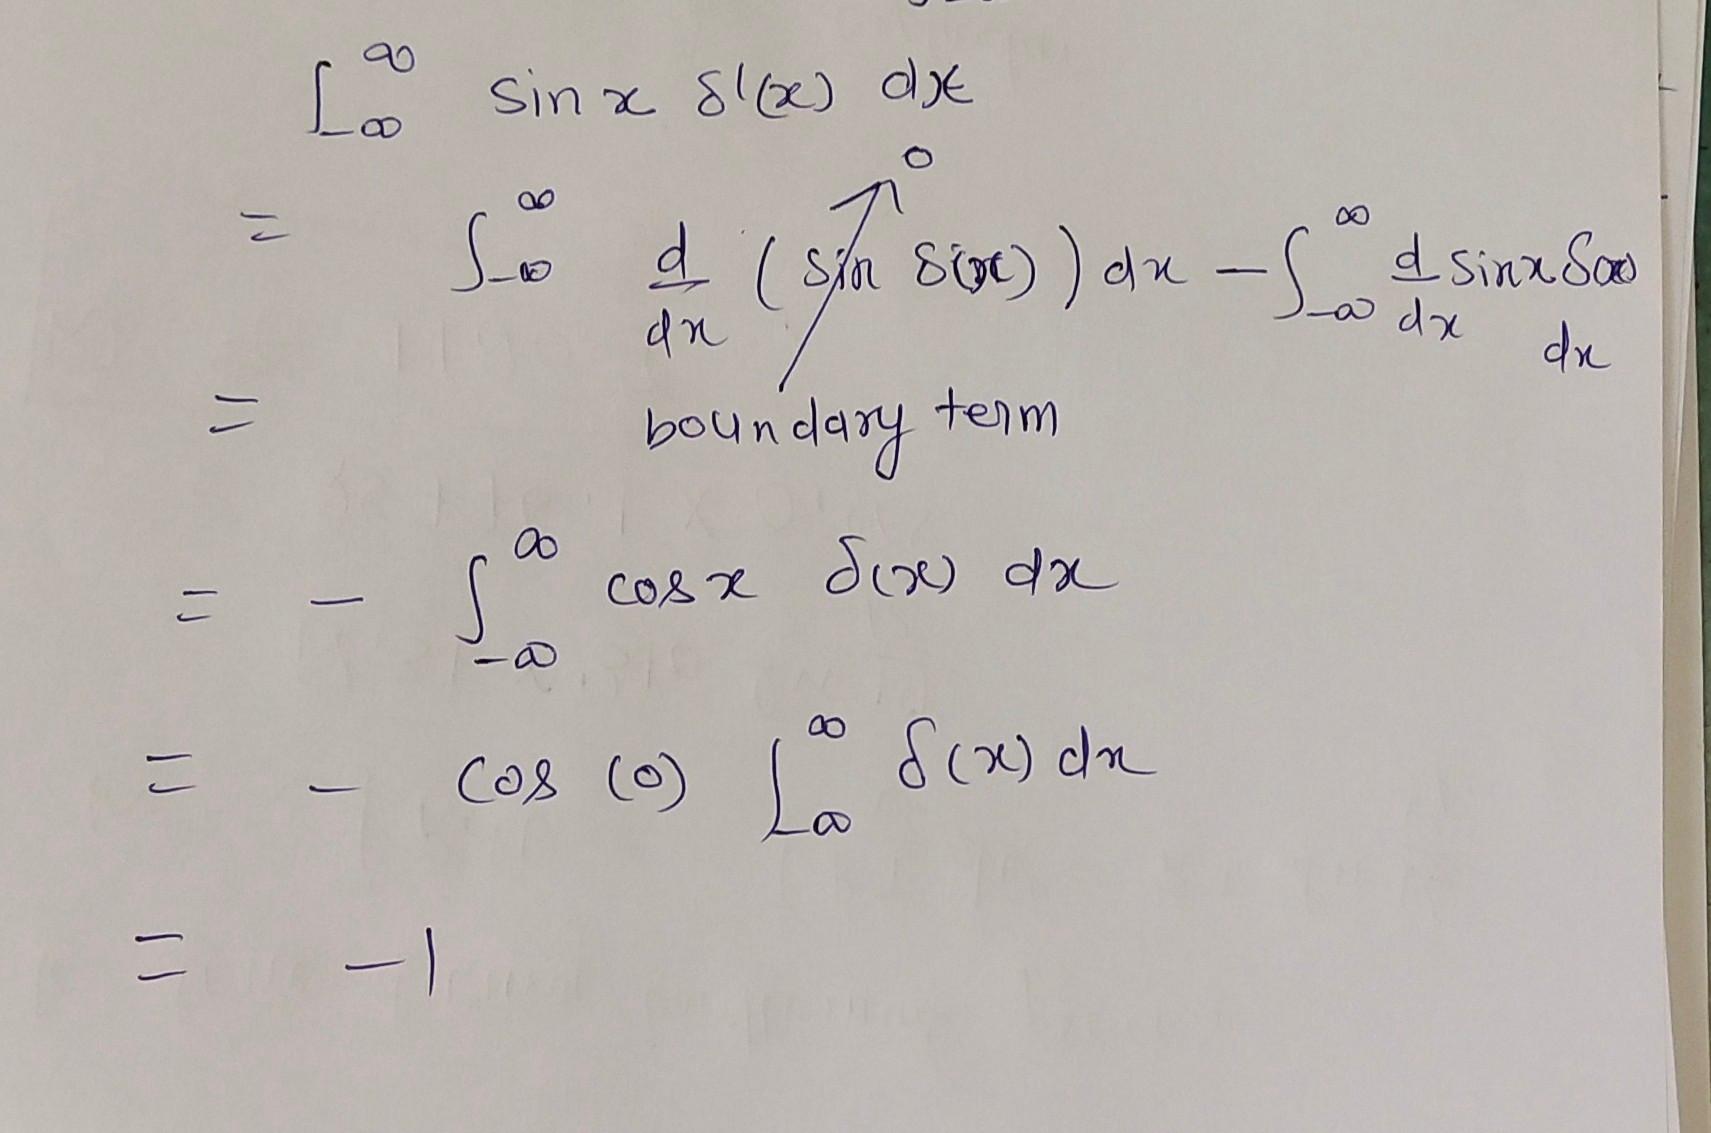 ∫_{-∞}^{∞} sin x δ'(x) dx
0
= ∫_{-∞}^{∞} d/dx (sin δ(x)) dx − ∫_{-∞}^{∞} d/dx sin x δ(x) dx
= boundary term
= − ∫_{-∞}^{∞} cos x δ(x) dx
= − cos (0) ∫_{-∞}^{∞} δ(x) dx
= −1